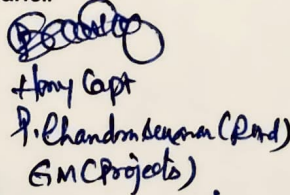 Hony Capt
P. Chandrasekaran (Retd)
GM (Projects)